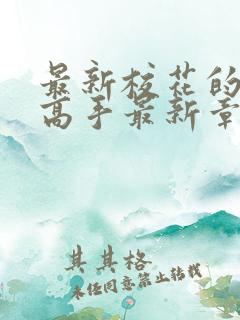 最新校花的
高手最新章
其其格
未经同意禁止转载